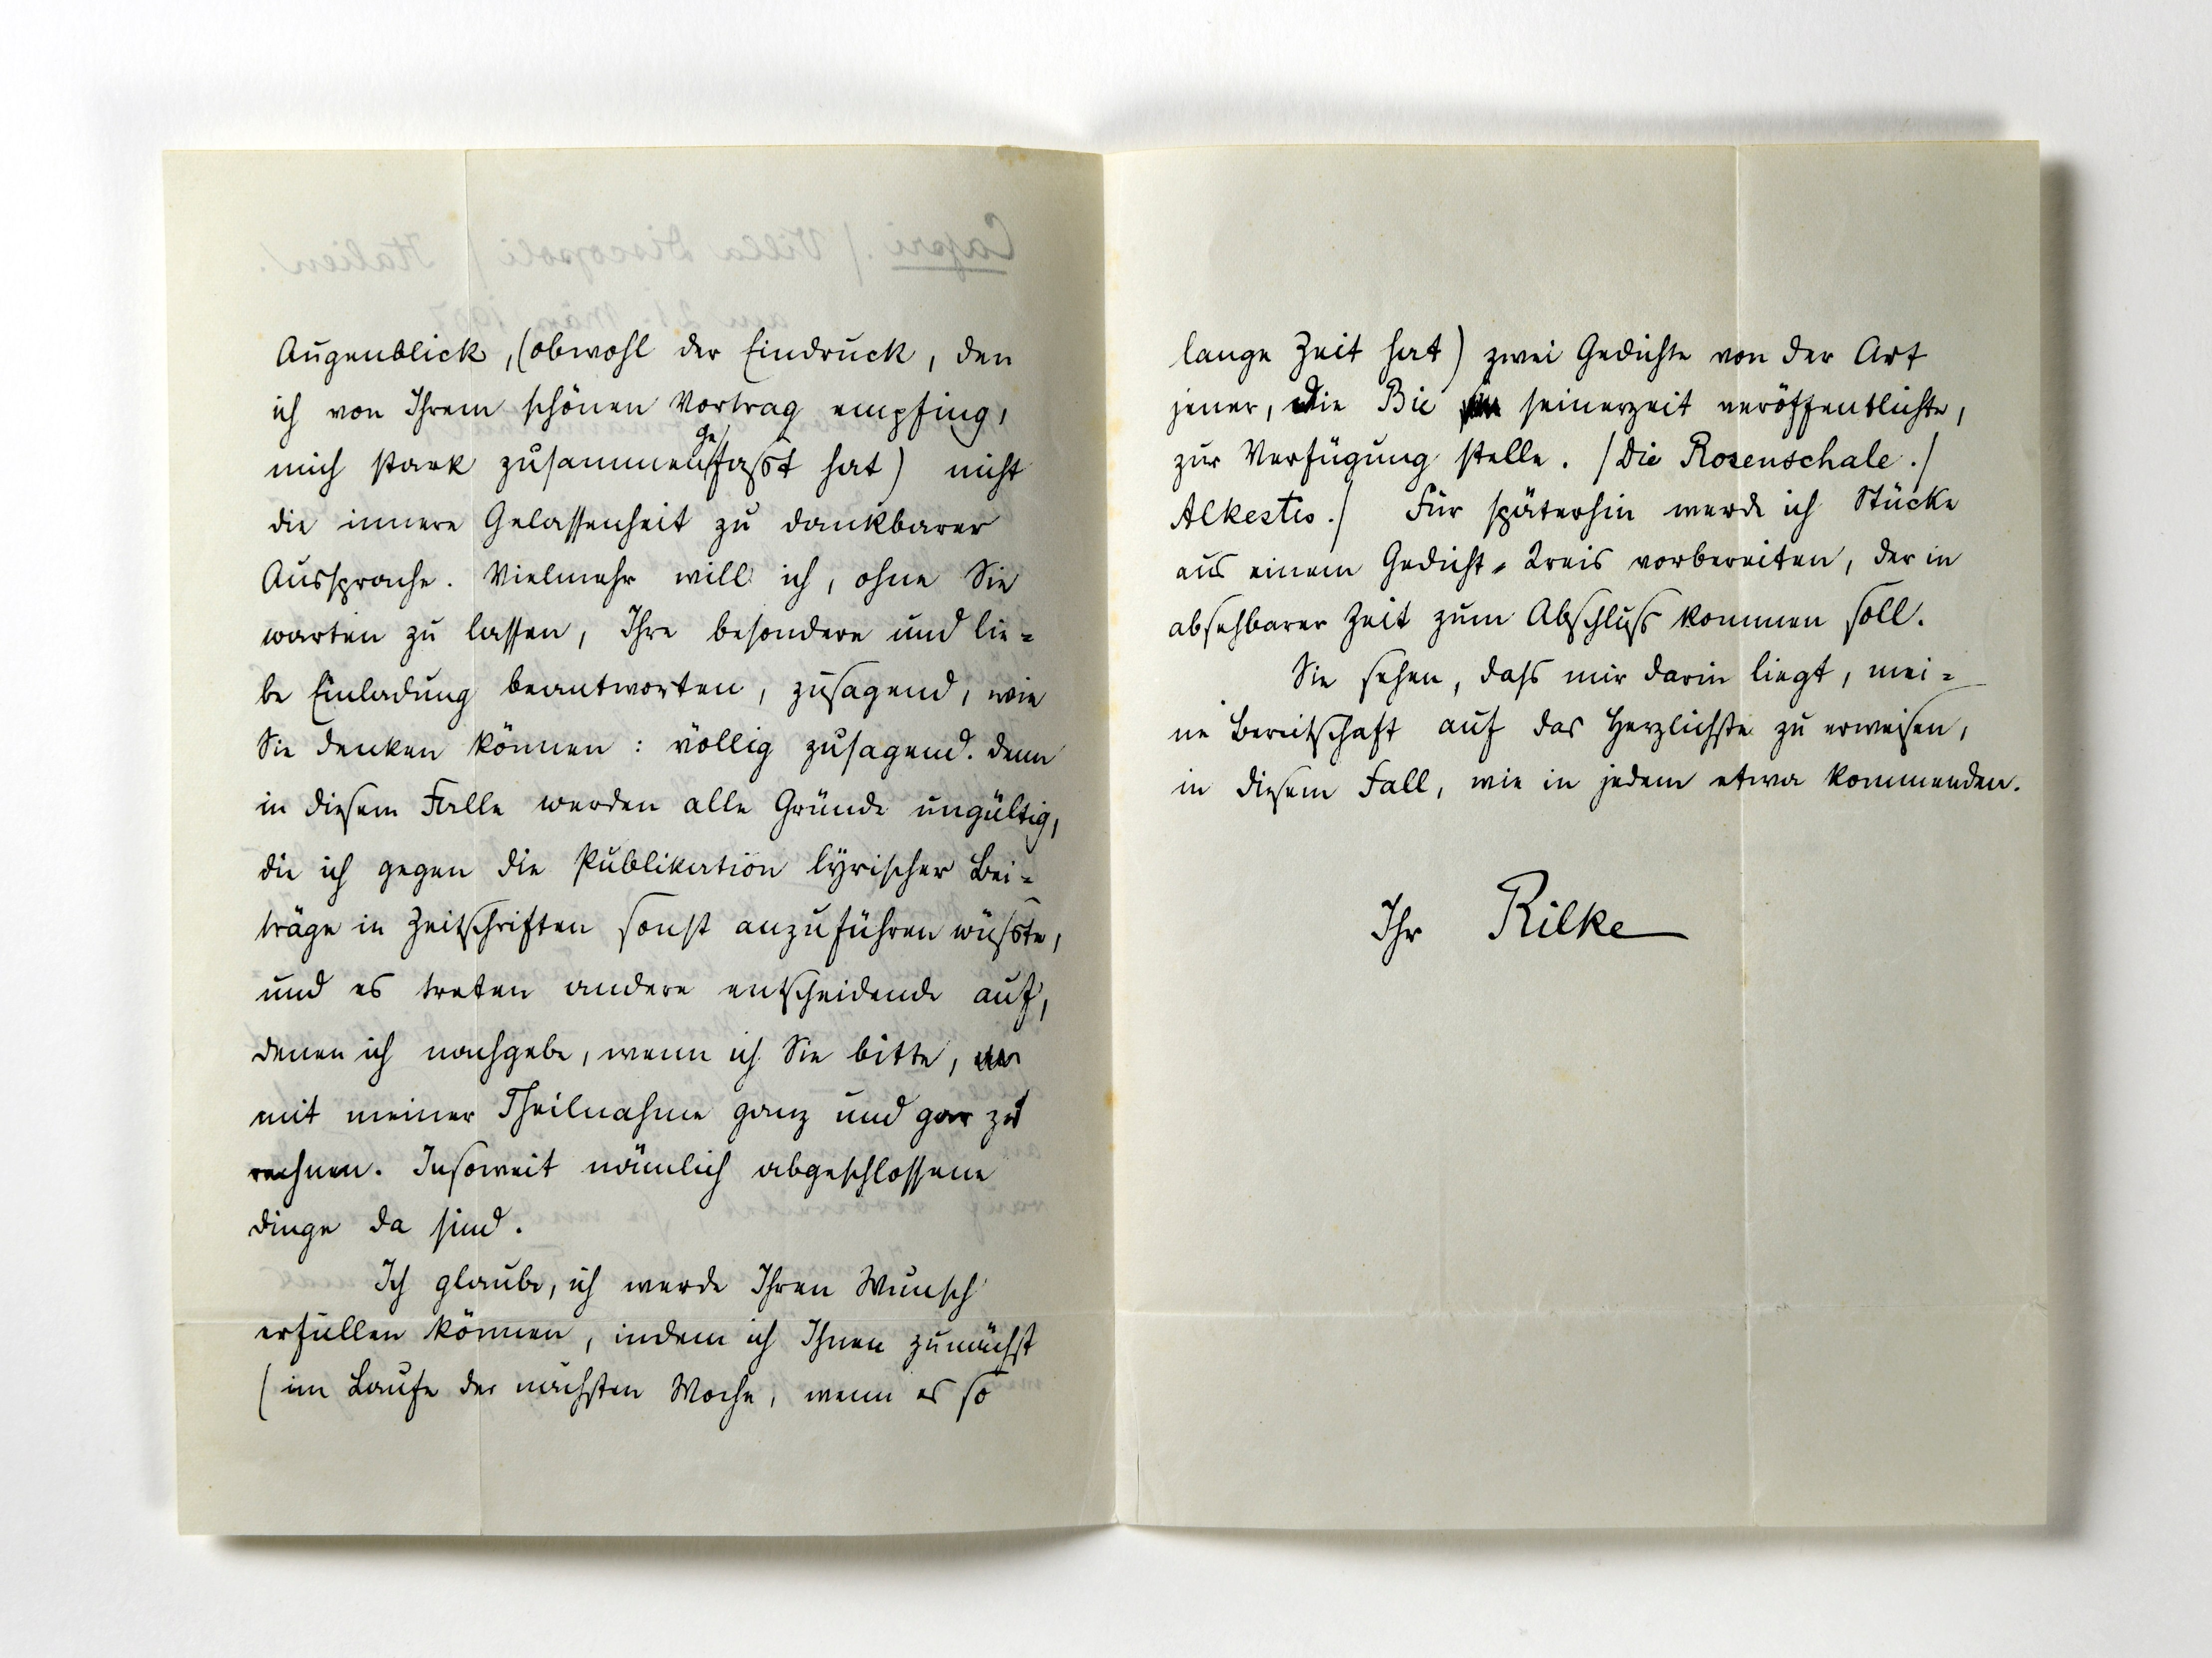 Augenblick, (obwohl der Eindruck, den
ich von Ihrem schönen Vortrag empfing,
mich stark zusammengefasst hat) nicht
die innere Gelassenheit zu dankbarer
Aussprache. Vielmehr will ich, ohne Sie
warten zu lassen, Ihre besondere und lie=
be Einladung beantworten, zusagend, wie
Sie denken können: völlig zusagend. Denn
in diesem Falle werden alle Gründe ungültig,
die ich gegen die Publikation lyrischer Bei=
träge in Zeitschriften sonst anzuführen wüsste,
und es treten andere entscheidende auf,
denen ich nachgebe, wenn ich Sie bitte,
mit meiner Theilnahme ganz und gar zu
rechnen. Insoweit nämlich abgeschlossene
Dinge da sind.
Ich glaube, ich werde Ihren Wunsch
erfüllen können, indem ich Ihnen zunächst
(im Laufe der nächsten Woche, wenn es so
lange Zeit hat) zwei Gedichte von der Art
jener, die Bie seinerzeit veröffentlichte,
zur Verfügung stelle. /Die Rosenschale./
Alkestis./ Für späterhin werde ich Stücke
aus einem Gedicht=Kreis vorbereiten, der in
absehbarer Zeit zum Abschluss kommen soll.
Sie sehen, dass mir darin liegt, mei=
ne Bereitschaft auf das Herzlichste zu erweisen,
in diesem Fall, wie in jedem etwa kommenden.
Ihr Rilke
Capri. / Villa Discopoli / Italien.
am 21. März 1907